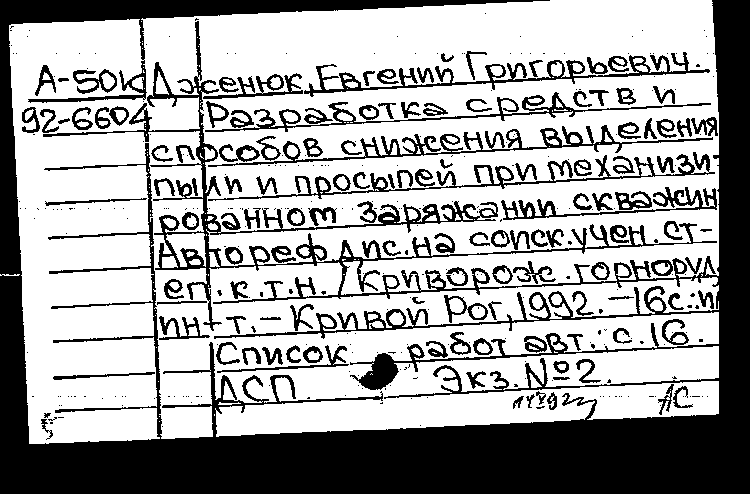 А-50к Дженюк, Евгений Григорьевич.
92-6604 Разработка средств и
способов снижения выделения
пыли и просыпей при механизи-
рованном заряжании скважин
Автореф дис. на соиск. учен. ст-
еп. к.т.н. / Криворож. горноруд.
ин-т. - Кривой Рог, 1992. - 16с.:
Список работ авт.: с. 16.
ДСП. Экз. №2.
АС